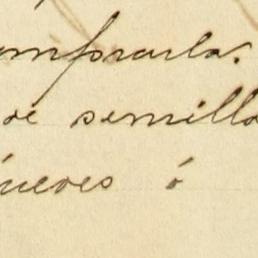 comprarla.
de semilla
jueves ó